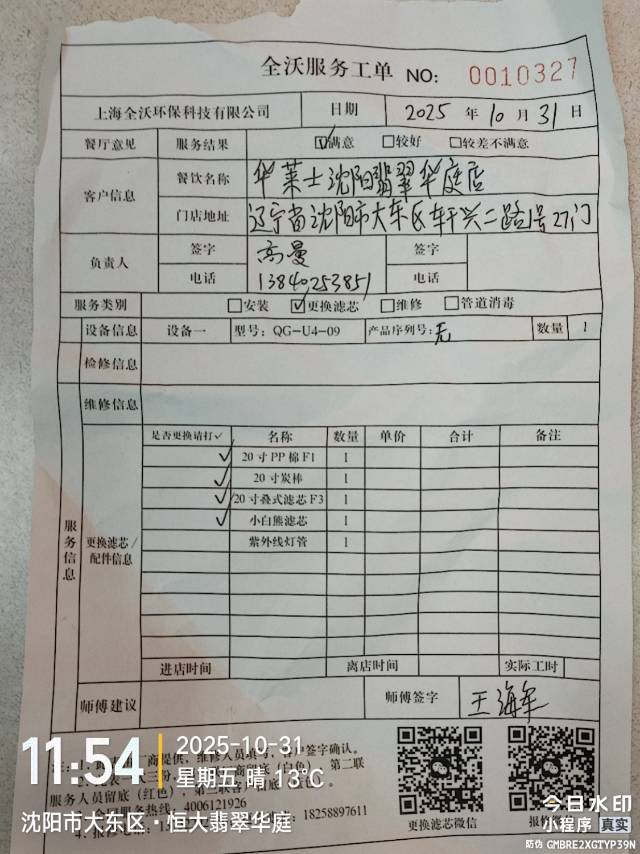 全沃服务工单 NO: 0010327
上海全沃环保科技有限公司 日期 2025 年 10 月 31 日
餐厅意见 服务结果 ☑满意 □较好 □较差不满意
客户信息 餐饮名称 华莱士沈阳翡翠华庭店
门店地址 辽宁省沈阳市大东区轩兴二路1号27门
负责人 签字 高曼 签字
电话 13840253851 电话
服务类别 □安装 ☑更换滤芯 □维修 □管道消毒
设备信息 设备一 型号: QG-U4-09 产品序列号: 无 数量 1
检修信息
维修信息
服务信息 更换滤芯/配件信息
是否更换请打✓ 名称 数量 单价 合计 备注
✓ 20寸PP棉F1 1
✓ 20寸炭棒 1
✓ 20寸叠式滤芯F3 1
✓ 小白熊滤芯 1
紫外线灯管 1
进店时间 离店时间 实际工时
师傅建议 师傅签字 王海军
11:54 2025-10-31
星期五 晴 13℃
沈阳市大东区·恒大翡翠华庭
商提供,维修人员填写,客户签字确认。
三份 留底(白色),第二联
服务人员留底(红色),第三联
服务热线: 4006121926
4、报修电话: 18258897611
更换滤芯微信
今日水印
小程序 真实
防伪 GMBRE2XGTYP39N